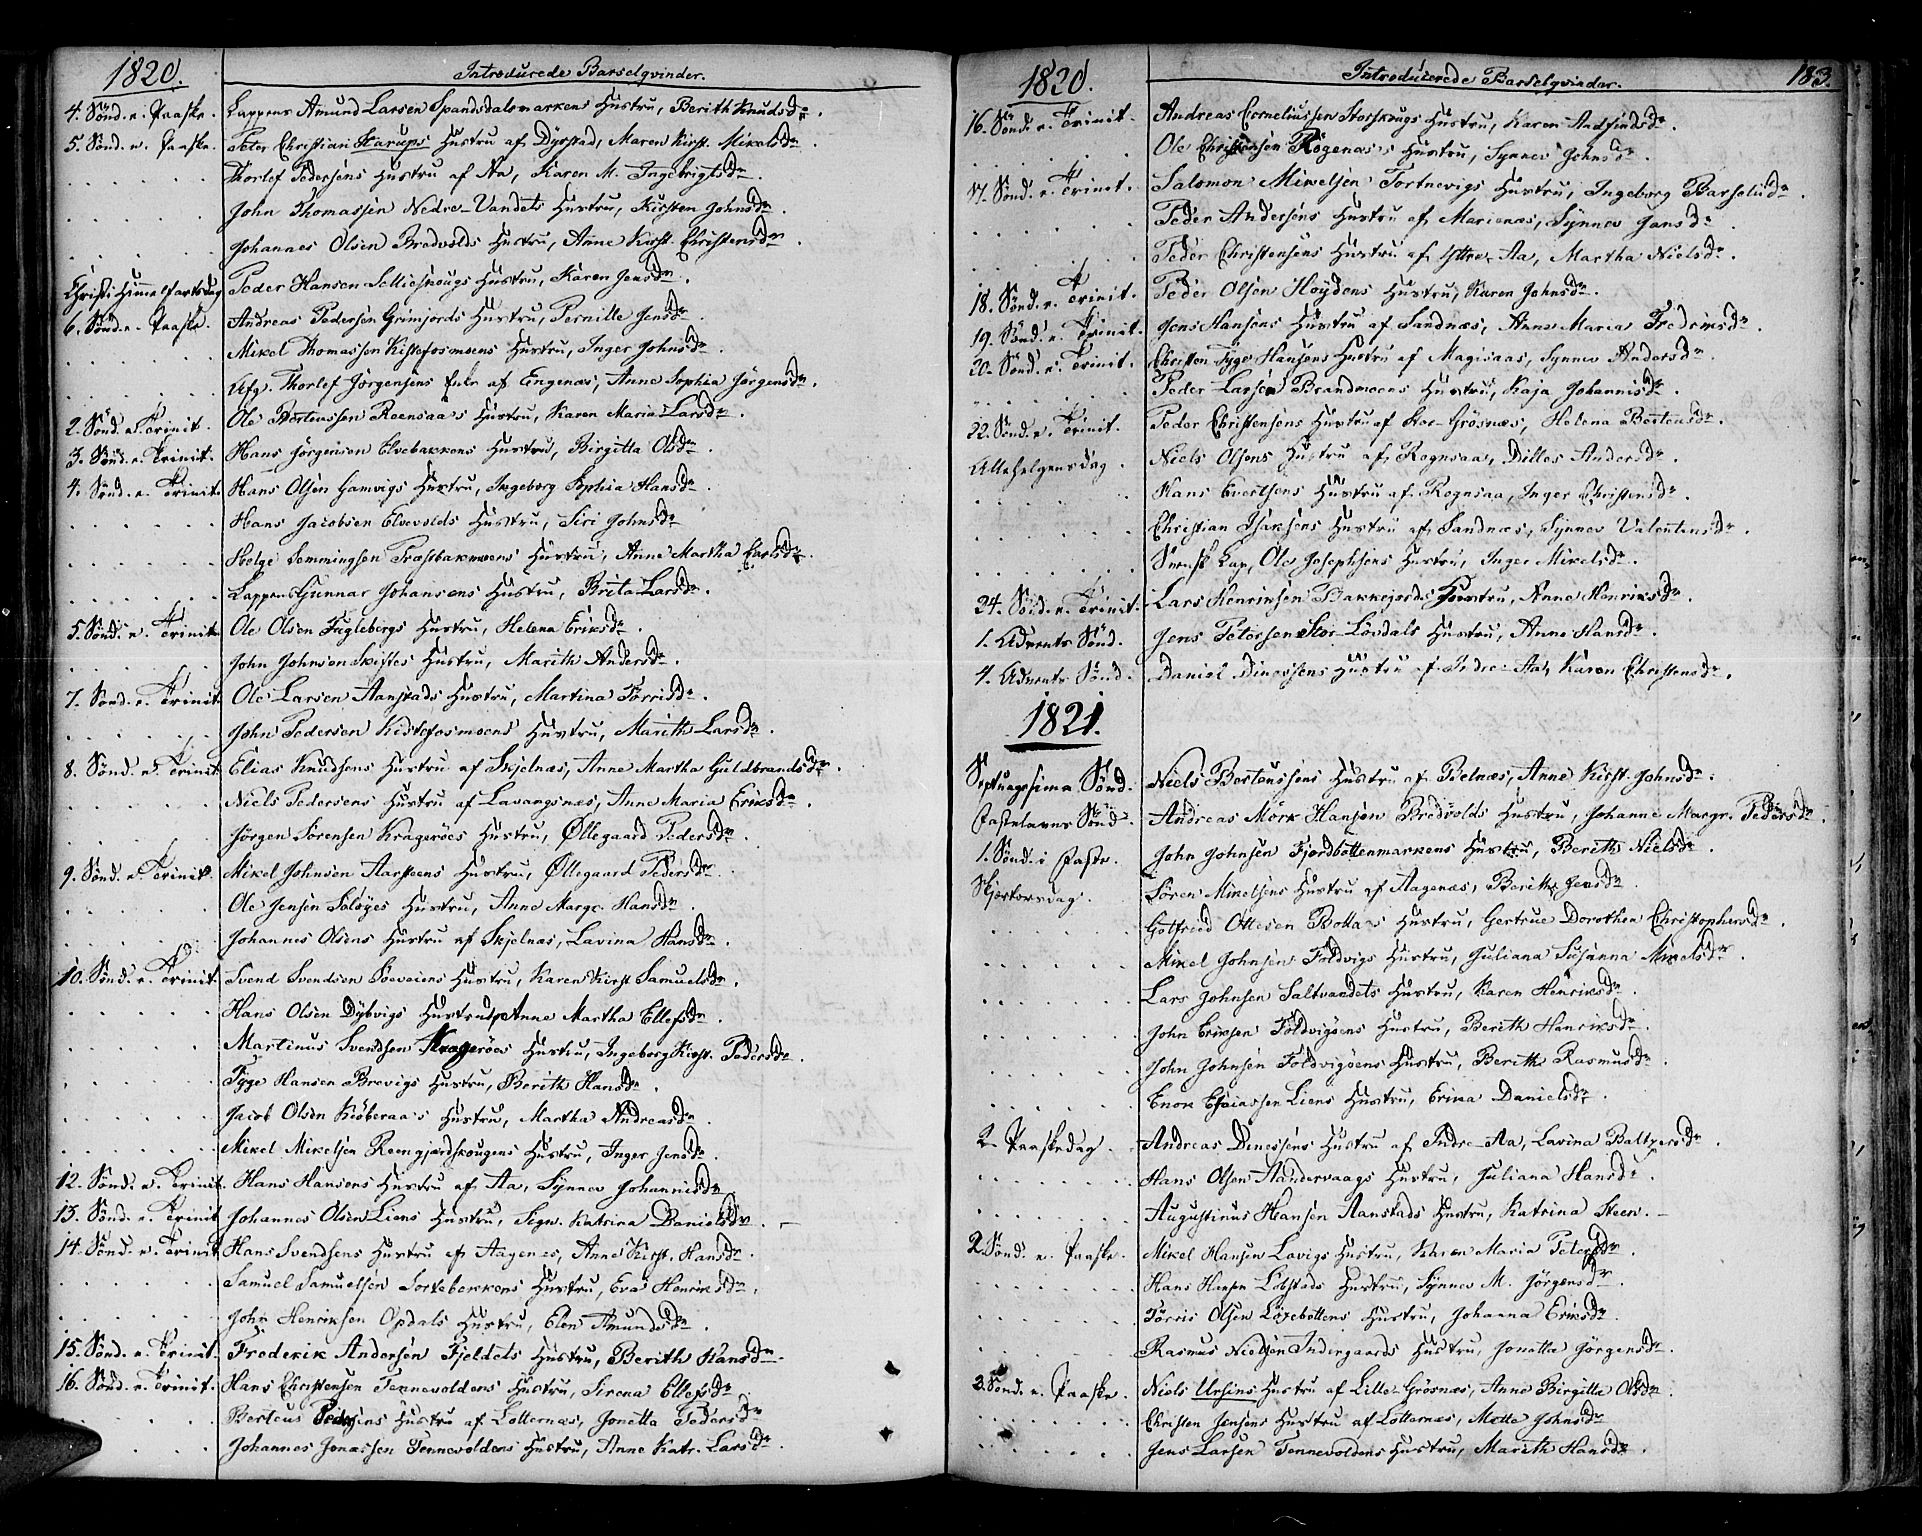 1820.
Introducerede Barselqvinder.
4. Sönd. e. Paaske. Lappens Amund Larsen Spandsdalsmarkens Hustru, Berith Knudsdr.
5. Sönd. e. Paaske. Peter Christian Harups Hustru af Dyrstad, Maren Kirst. Mikelsdr.
Thorlef Pedersens Hustru af Aa, Karen M. Ingebrigtsdr.
John Thomassen Nedre-Vandets Hustru, Kirsten Johnsdr.
Johannes Olsen Bredvolds Hustru, Anne Kirst. Christensdr.
Christi Himmelfartsdag Peder Hansen Selliskougs Hustru, Karen Jensdr.
6. Sönd. e. Paaske. Andreas Pedersen Grimjords Hustru, Pernille Jensdr.
Mikel Thomassen Kistefosmoens Hustru, Inger Johnsdr.
Afg. Thorlef Jörgensens Enke af Engenæs, Anne Sophia Jörgensdr.
2. Sönd. e. Trinit. Ole Berteussen Reensaas Hustru, Karen Maria Larsdr.
3. Sönd. e. Trinit. Hans Jörgensen Elvebakkens Hustru, Birgitta Olsdr.
4. Sönd. e. Trinit. Hans Olsen Hamvigs Hustru, Ingeborg Sophia Hansdr.
Hans Jacobsen Elvevolds Hustru, Siri Johnsdr.
Helge Semmingsen Præstbakmoens Hustru, Anne Martha Carlsdr.
Lappens Gunnar Johansens Hustru, Brita Larsdr.
5. Sönd. e. Trinit. Ole Olsen Fuglebergs Hustru, Helena Eriksdr.
John Johnsen Skistes Hustru, Marith Andersdr.
7. Sönd. e. Trinit. Ole Larsen Aanstads Hustru, Martina Törrisdr.
John Pedersen Kistefosmoens Hustru, Marith Larsdr.
8. Sönd. e. Trinit. Elias Knudsens Hustru af Skjelnæs, Anne Martha Guldbrandsdr.
Niels Pedersens Hustru af Lavangsnæs, Anne Maria Eriksdr.
Jörgen Sörensen Krageröes Hustru, Øllegaard Pedersdr.
9. Sönd. e. Trinit. Mikel Johnsen Aarsteens Hustru, Øllegaard Pedersdr.
Ole Jensen Salöyes Hustru, Anne Margr. Hansdr.
Johannes Olsens Hustru af Skjelnæs, Lavina Hansdr.
10. Sönd. e. Trinit. Svend Svendsen Söeveiens Hustru, Karen Kirst. Samuelsdr.
Hans Olsen Dybvigs Hustru, Anne Martha Ellefsdr.
Martinus Svendsen Krageröes Hustru, Ingeborg Kirst. Pedersdr.
Tyge Hansen Brevigs Hustru, Berith Hansdr.
Jacob Olsen Kiöberaas Hustru, Martha Andreasdr.
Mikel Mikelsen Reengjærdskougens Hustru, Inger Jensdr.
12. Sönd. e. Trinit. Hans Hansens Hustru af Aa, Synnev Johannisdr.
13. Sönd. e. Trinit. Johannes Olsen Liens Hustru, Segn. Katrina Danielsdr.
14. Sönd. e. Trinit. Hans Svendsens Hustru af Aagenæs, Anne Kirst. Hansdr.
Samuel Samuelsen Sortebekkens Hustru, Eva Henriksdr.
John Henriksen Opdals Hustru, Elen Amundsdr.
15. Sönd. e. Trinit. Frederik Andersen Fjeldets Hustru, Berith Hansdr.
16. Sönd. e. Trinit. Hans Christensen Tennevoldens Hustru, Sirena Ellefsdr.
Berteus Pedersens Hustru af Lotternæs, Jonetta Pedersdr.
Johannes Jonassen Tennevoldens Hustru, Anne Katr. Larsdr.
1820.
Introducerede Barselqvinder.
183.
16. Sönd. e. Trinit. Andreas Corneliussen Storskougs Hustru, Karen Andfindsdr.
Ole Christensen Rogenæs's Hustru, Synnev Johnsdr.
17. Sönd. e. Trinit. Salomon Mikelsen Tortnevigs Hustru, Ingeborg Barseliidr.
Peder Andersens Hustru af Marienæs, Synnev Jansdr.
Peder Christensens Hustru af Yttre-Aa, Martha Nielsdr.
18. Sönd. e. Trinit. Peder Olsen Höydens Hustru, Karen Johnsdr.
19. Sönd. e. Trinit. Jens Hansens Hustru af Sandnæs, Anne Maria Frederiksdr.
20. Sönd. e. Trinit. Christen Tyge Hansens Hustru af Magisaas, Synnev Andersdr.
Peder Larsen Brandmoens Hustru, Kaja Johannisdr.
22. Sönd. e. Trinit. Peder Christensens Hustru af Stor-Grösnæs, Helena Bertensdr.
Allehelgensdag. Niels Olsens Hustru af Rognsaa, Dilles Andersdr.
Hans Evertsens Hustru af Rognsaa, Inger Christensdr.
Christian Isaksens Hustru af Sandnæs, Synnev Valentensdr.
Svensk Lap, Ole Josephsens Hustru, Inger Mikelsdr.
24. Sönd. e. Trinit. Lars Henriksen Bakkejords Hustru, Anne Henriksdr.
1. Advents Sönd. Jens Petersen Stor-Lövdals Hustru, Anne Hansdr.
4. Advents Sönd. Daniel Dinessens Hustru af Indre-Aa, Karen Christensdr.
1821.
Septuagesima Sönd. Niels Berteussens Hustru af Belnæs, Anne Kirst. Johnsdr.
Fastelavns Sönd. Andreas Mörk Hansen Bredvolds Hustru, Johanne Margr. Pedersdr.
1. Sönd. i Faste. John Johnsen Fjordbottenmarkens Hustru, Berith Nielsdr.
Skjertorsdag. Sören Mikelsens Hustru af Aagenæs, Berith Jensdr.
Gotfried Ottesen Bottas Hustru, Gertrue Dorothea Christophersdr.
Mikel Johnsen Foldvigs Hustru, Juliana Susanna Mikelsdr.
Lars Johnsen Saltvandets Hustru, Karen Henriksdr.
John Eriksen Foldvigöens Hustru, Berith Henriksdr.
John Johnsen Foldvigöens Hustru, Berith Rasmusdr.
Enok Esaiassen Liens Hustru, Erika Danielsdr.
2. Paaskedag. Andreas Dinessens Hustru af Indre-Aa, Lavina Baltzersdr.
Hans Olsen Aandervaags Hustru, Juliana Hansdr.
Augustinus Hansen Aanstads Hustru, Katrina Steen.
2. Sönd. e. Paaske. Mikel Hansen Lavigs Hustru, Karen Maria Petersdr.
Hans Hansen Löbstads Hustru, Synnev M. Jörgensdr.
Törris Olsen Löxebottens Hustru, Johanna Eriksdr.
Rasmus Nielsen Indregaards Hustru, Jonetta Jörgensdr.
3. Sönd. e. Paaske. Niels Ursins Hustru af Lille-Grösnæs, Anne Birgitte Olsdr.
Christen Jensens Hustru af Lotternæs, Mette Johnsdr.
Jens Larsen Tennevoldens Hustru, Marith Hansdr.